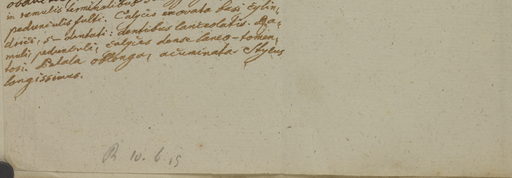 in ramulis terminalibus
pedunculis fulti. Calyces inovato basi cylin,
drici, 5-dentati: dentibus lanceolatis. Ra,
muli, pedunculi, calyces dense laneo-tomen,
tosi. Petala oblonga, acuminata. Stylus
longissimus.
R 10. 6. 15